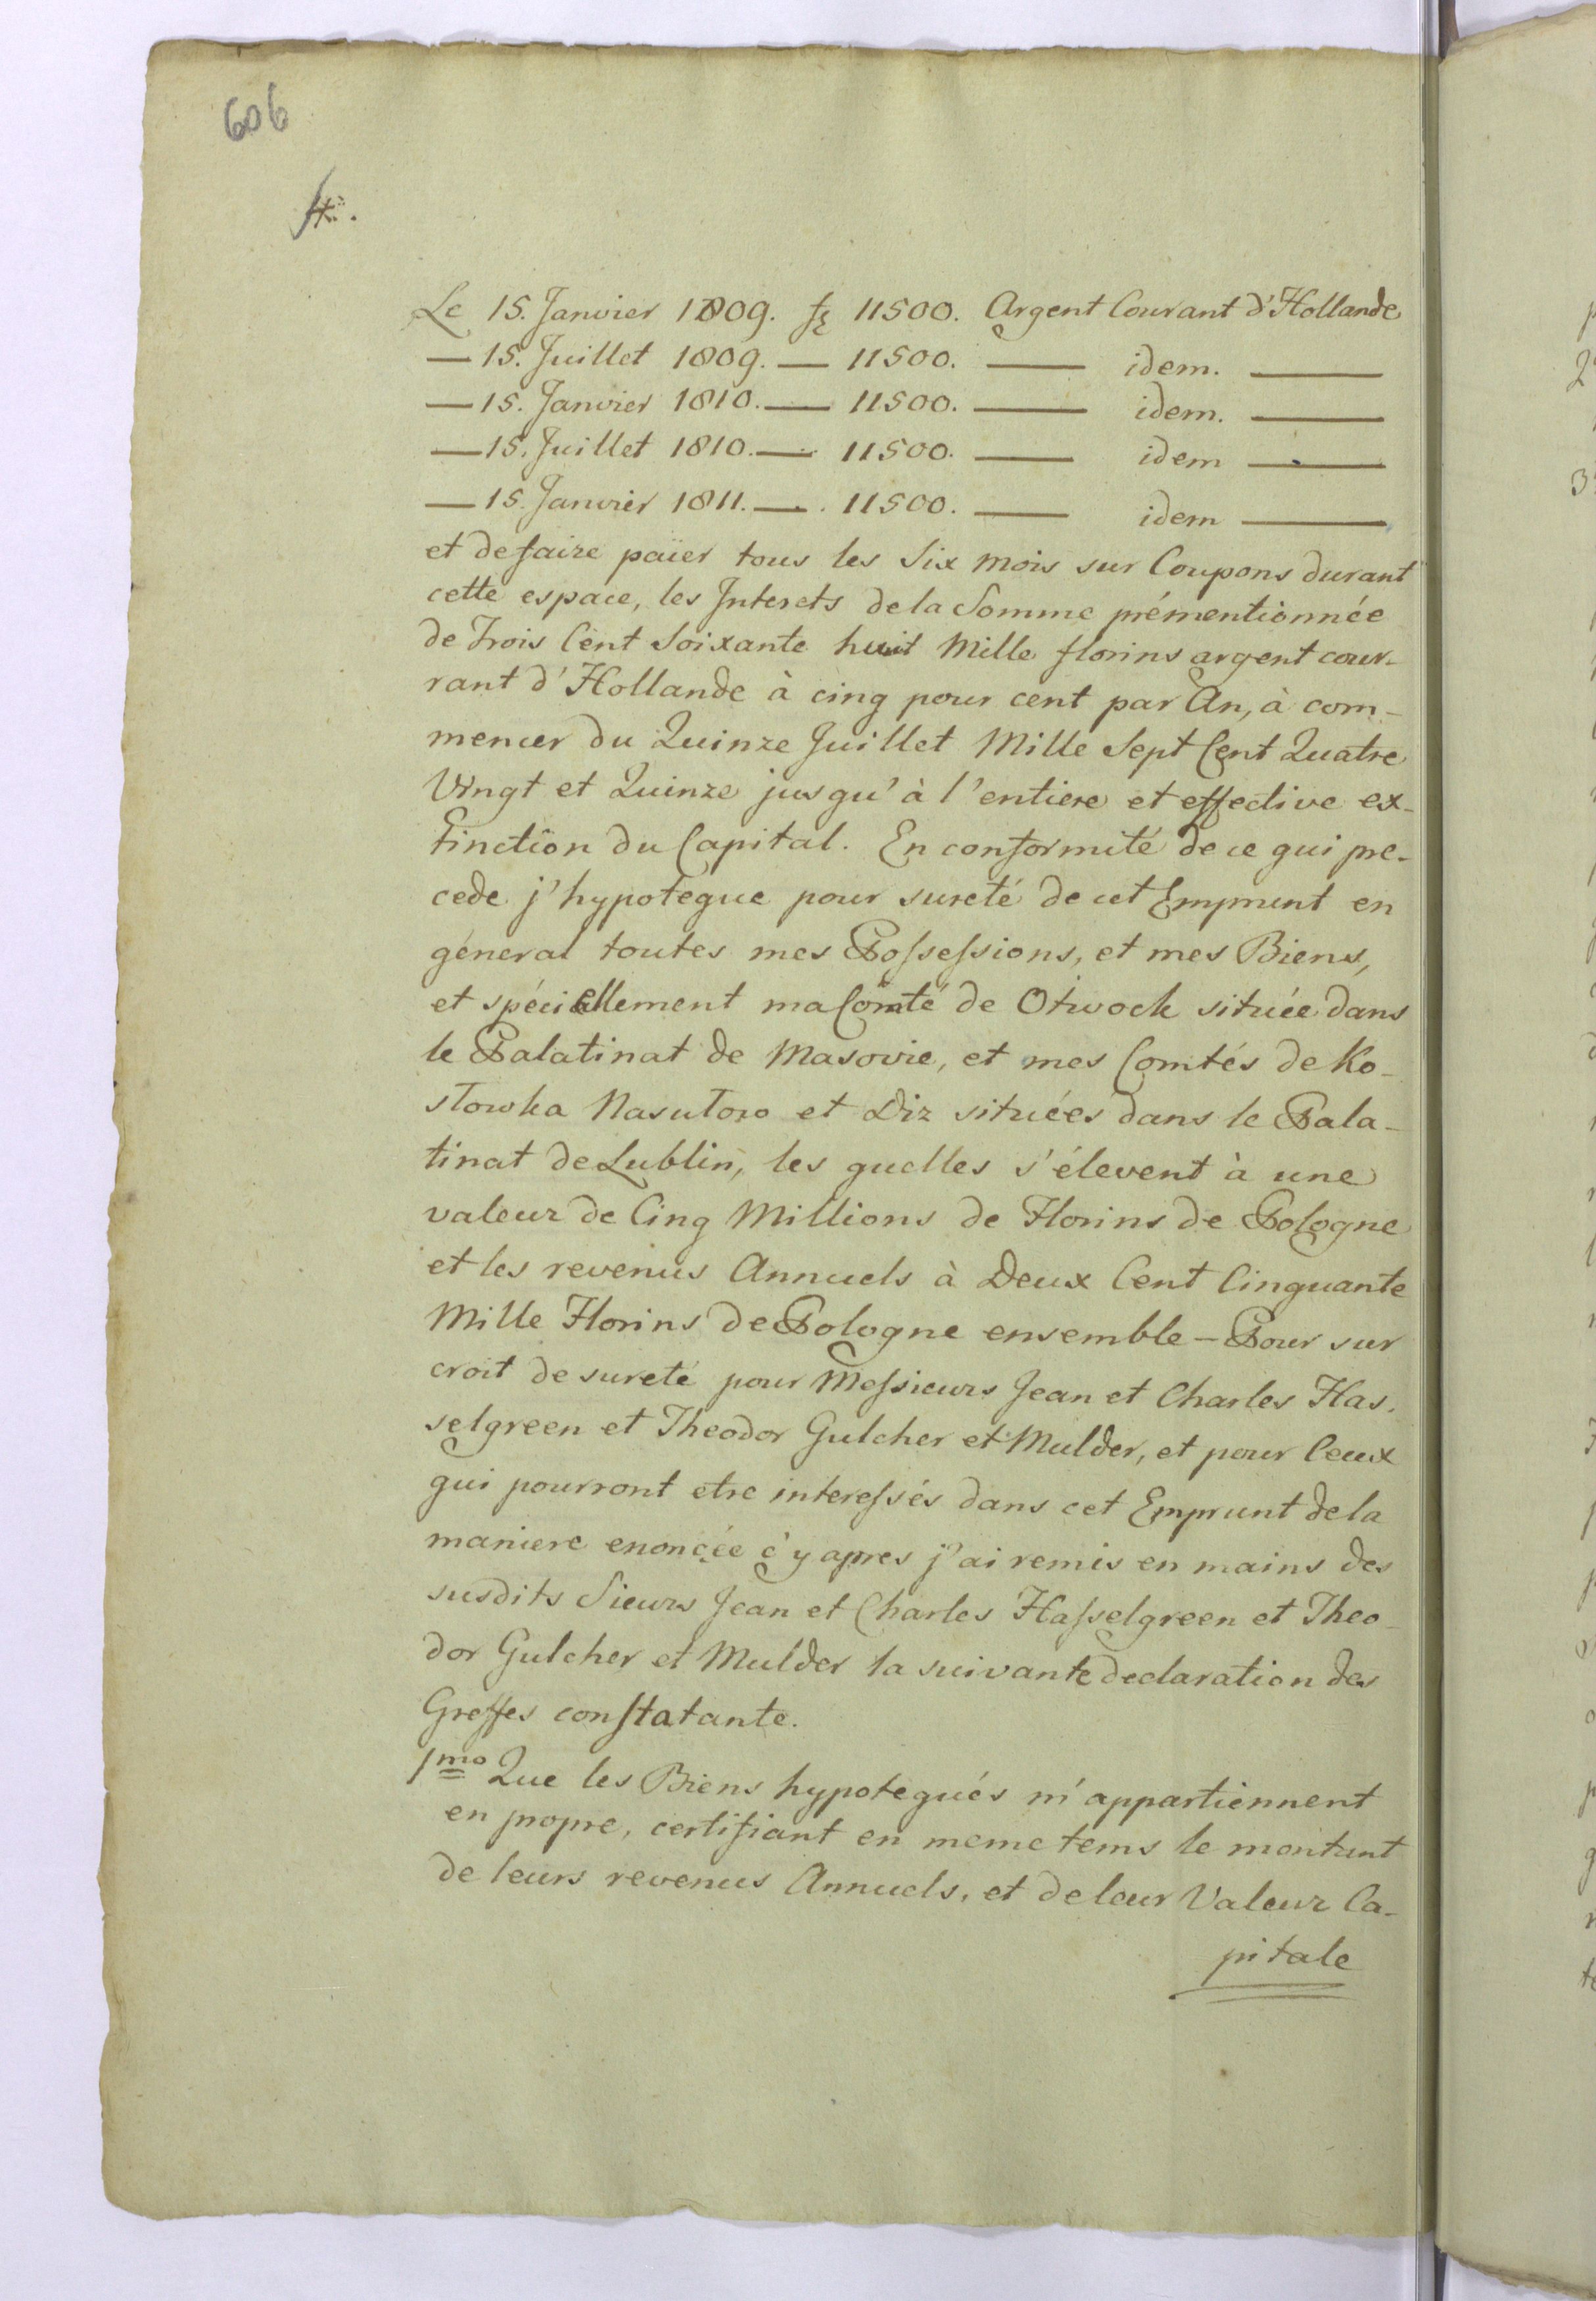 606
Le 15. Janvier 1809. f 11500. Argent Courant d'Hollande
— 15. Juillet 1809. — 11500. — idem. —
— 15. Janvier 1810. — 11500. — idem. —
— 15. Juillet 1810. — 11500. — idem —
— 15. Janvier 1811. — 11500. — idem —
et de faire païer tous les Six mois sur Coupons durant
cette espace, les Interets de la Somme prémentionnée
de Trois Cent Soixante huit Mille florins argent cour-
rant d'Hollande à cinq pour cent par An, à com-
mencer du Quinze Juillet Mille Sept Cent Quatre
Vingt et Quinze jusqu'à l'entiere et effective ex-
tinction du Capital. En conformité de ce qui pre-
cede j'hypoteque pour sureté de cet Emprunt en
géneral toutes mes Poſseſsions, et mes Biens,
et spéciellement ma Comté de Otwock située dans
le Palatinat de Masovie, et mes Comtés de Ko-
stowka Nasutow et Diz situées dans le Pala-
tinat de Lublin, les quelles s'élevent à une
valeur de Cinq Millions de Florins de Pologne
et les revenus Annuels à Deux Cent Cinquante
Mille Florins de Pologne ensemble — Pour sur
croit de sureté pour Meſsieurs Jean et Charles Has-
selgreen et Theodor Gulcher et Mulder, et pour Ceux
qui pourront etre intereſsés dans cet Emprunt de la
maniere enonçée ç'y apres j'ai remis en mains des
susdits Sieurs Jean et Charles Haſselgreen et Theo-
dor Gulcher et Mulder la suivante declaration des
Greffes conſtatante.
1mo Que les Biens hypotequés m'appartiennent
en propre, certifiant en meme tems le montant
de leurs revenus Annuels, et de leur Valeur Ca-
pitale